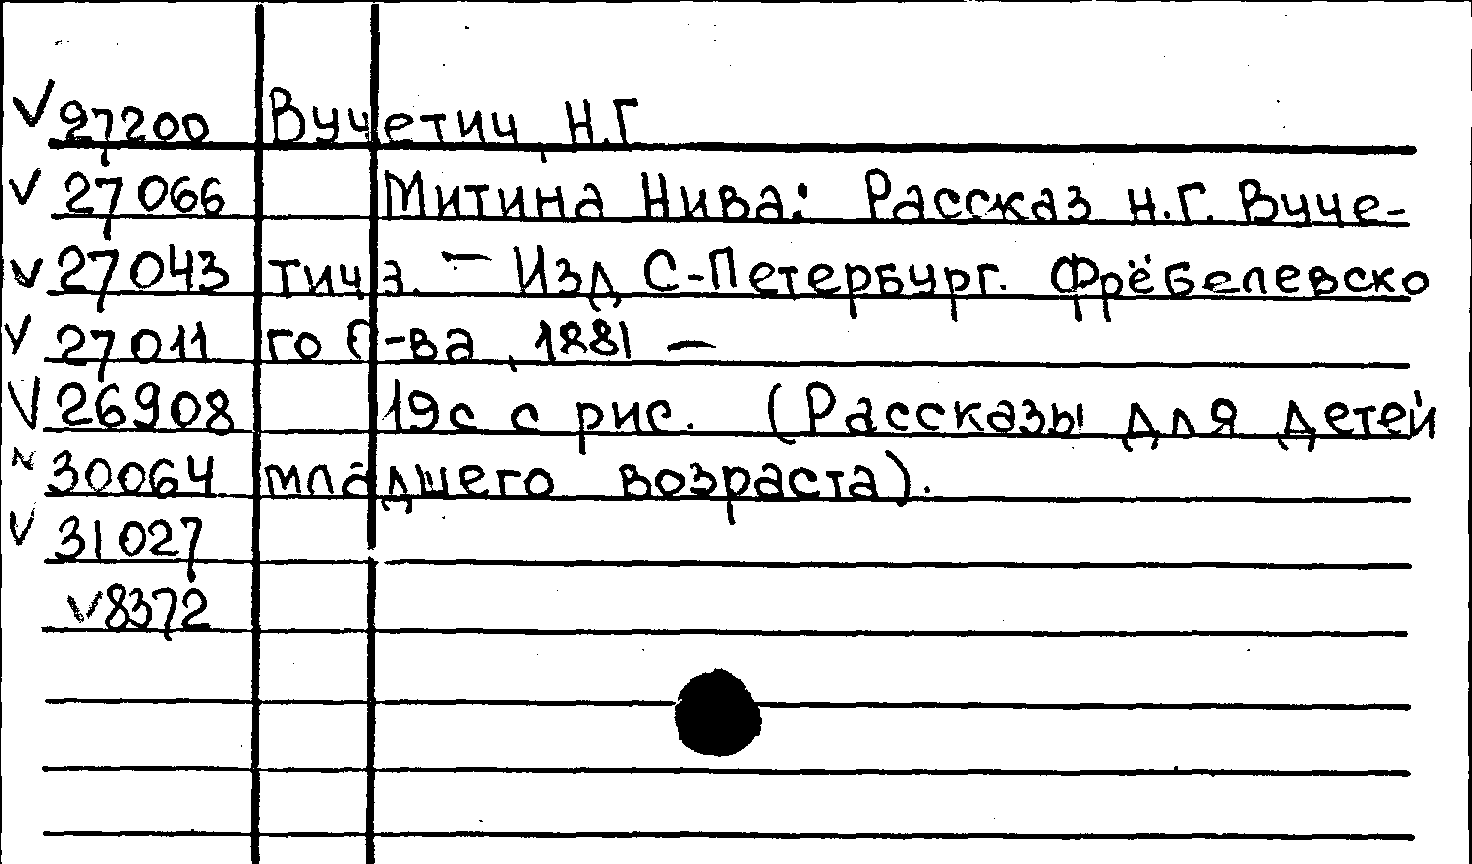 V 27200 Вучетич, Н.Г
V 27066 Митина Нива: Рассказ Н.Г. Вуче-
V 27043 тича. — Изд С-Петербург. Фрёбелевско
V 27011 го О-ва, 1881 —
V 26908 19с с рис. (Рассказы для детей
30064 младшего возраста).
V 31027
V 8372